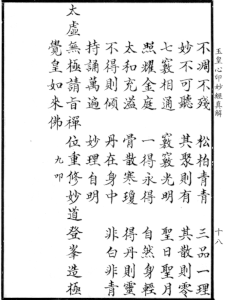 玉皇心印妙經真解 十八
不凋不殘 松柏青青 三品一理
妙不可聽 其聚則有 其散則零
七竅相通 竅竅光明 聖日聖月
照耀金庭 一得永得 自然身輕
太和充溢 骨散寒瓊 得丹則靈
不得則傾 丹在身中 非白非青
持誦萬遍 妙理自明
太虛無極請首禪位重修妙道登峯造極
覺皇如來佛 九叩